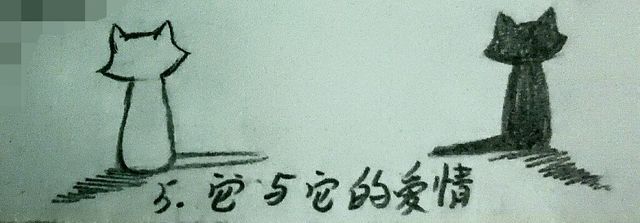 5. 它与它的爱情